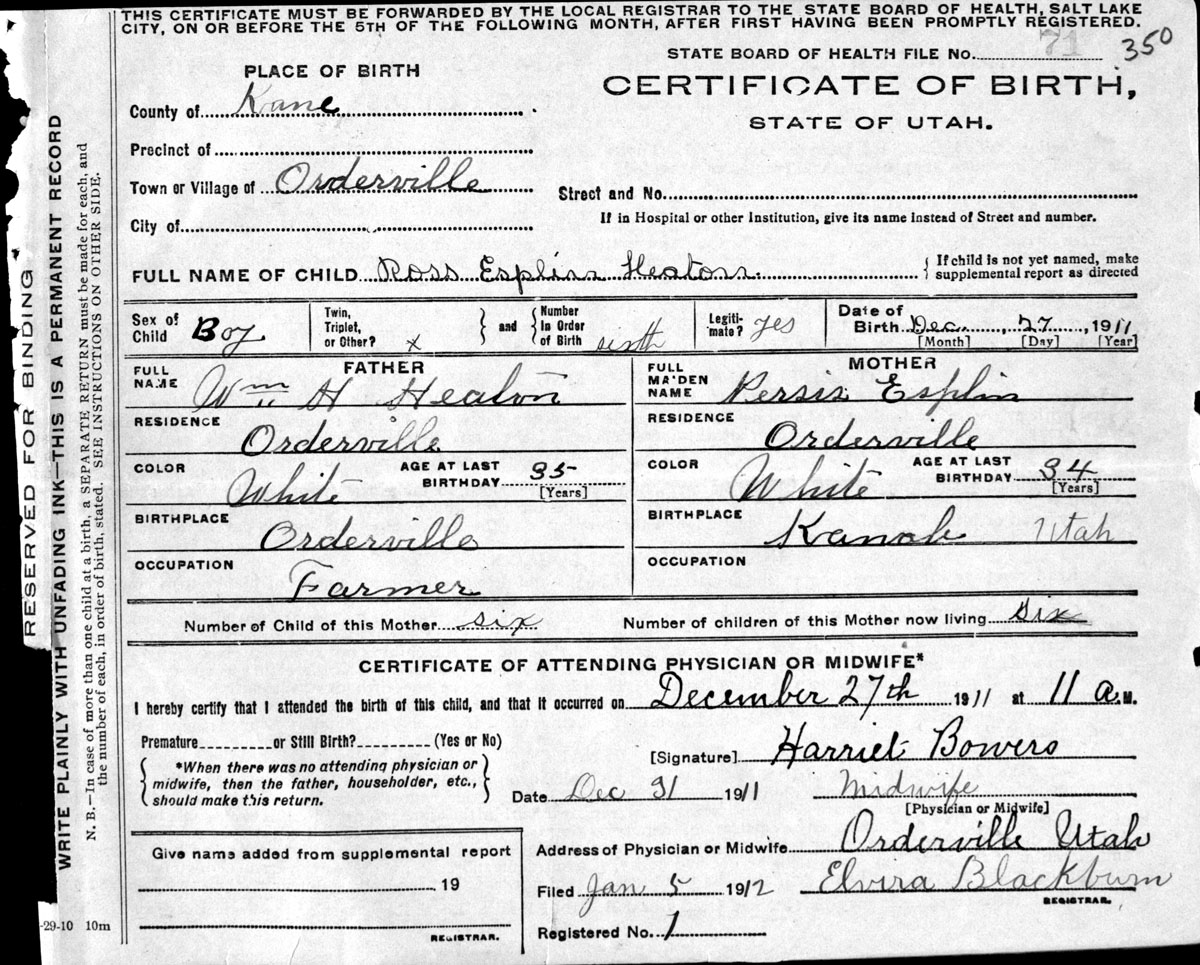 THIS CERTIFICATE MUST BE FORWARDED BY THE LOCAL REGISTRAR TO THE STATE BOARD OF HEALTH, SALT LAKE
CITY, ON OR BEFORE THE 5TH OF THE FOLLOWING MONTH, AFTER FIRST HAVING BEEN PROMPTLY REGISTERED.
STATE BOARD OF HEALTH FILE No. 71 350
PLACE OF BIRTH
CERTIFICATE OF BIRTH,
STATE OF UTAH.
County of Kane
Precinct of
Town or Village of Orderville
Street and No.
City of
If in Hospital or other Institution, give its name instead of Street and number.
FULL NAME OF CHILD Ross Esplin Heaton {If child is not yet named, make supplemental report as directed
Sex of Child Boy
Twin, Triplet, or Other? x } and { Number In Order of Birth sixth
Legiti-mate? yes
Date of Birth Dec. 27, 1911
[Month] [Day] [Year]
FATHER
FULL NAME Wm H Heaton
RESIDENCE Orderville
COLOR White AGE AT LAST BIRTHDAY 35 [Years]
BIRTHPLACE Orderville
OCCUPATION Farmer
MOTHER
FULL MAIDEN NAME Persis Esplin
RESIDENCE Orderville
COLOR White AGE AT LAST BIRTHDAY 34 [Years]
BIRTHPLACE Kanab Utah
OCCUPATION
Number of Child of this Mother six Number of children of this Mother now living six
CERTIFICATE OF ATTENDING PHYSICIAN OR MIDWIFE*
I hereby certify that I attended the birth of this child, and that it occurred on December 27th 1911 at 11 a.M.
Premature or Still Birth? (Yes or No)
{*When there was no attending physician or
midwife, then the father, householder, etc.,
should make this return.}
[Signature] Harriet Bowers
Date Dec 31 1911 Midwife
[Physician or Midwife]
Address of Physician or Midwife Orderville Utah
Filed Jan 5 1912 Elvira Blackburn
REGISTRAR.
Registered No. 1
Give name added from supplemental report
19
REGISTRAR.
-29-10 10m
RESERVED FOR BINDING
WRITE PLAINLY WITH UNFADING INK—THIS IS A PERMANENT RECORD
N. B.—In case of more than one child at a birth, a SEPARATE RETURN must be made for each, and
the number of each, in order of birth, stated. SEE INSTRUCTIONS ON OTHER SIDE.